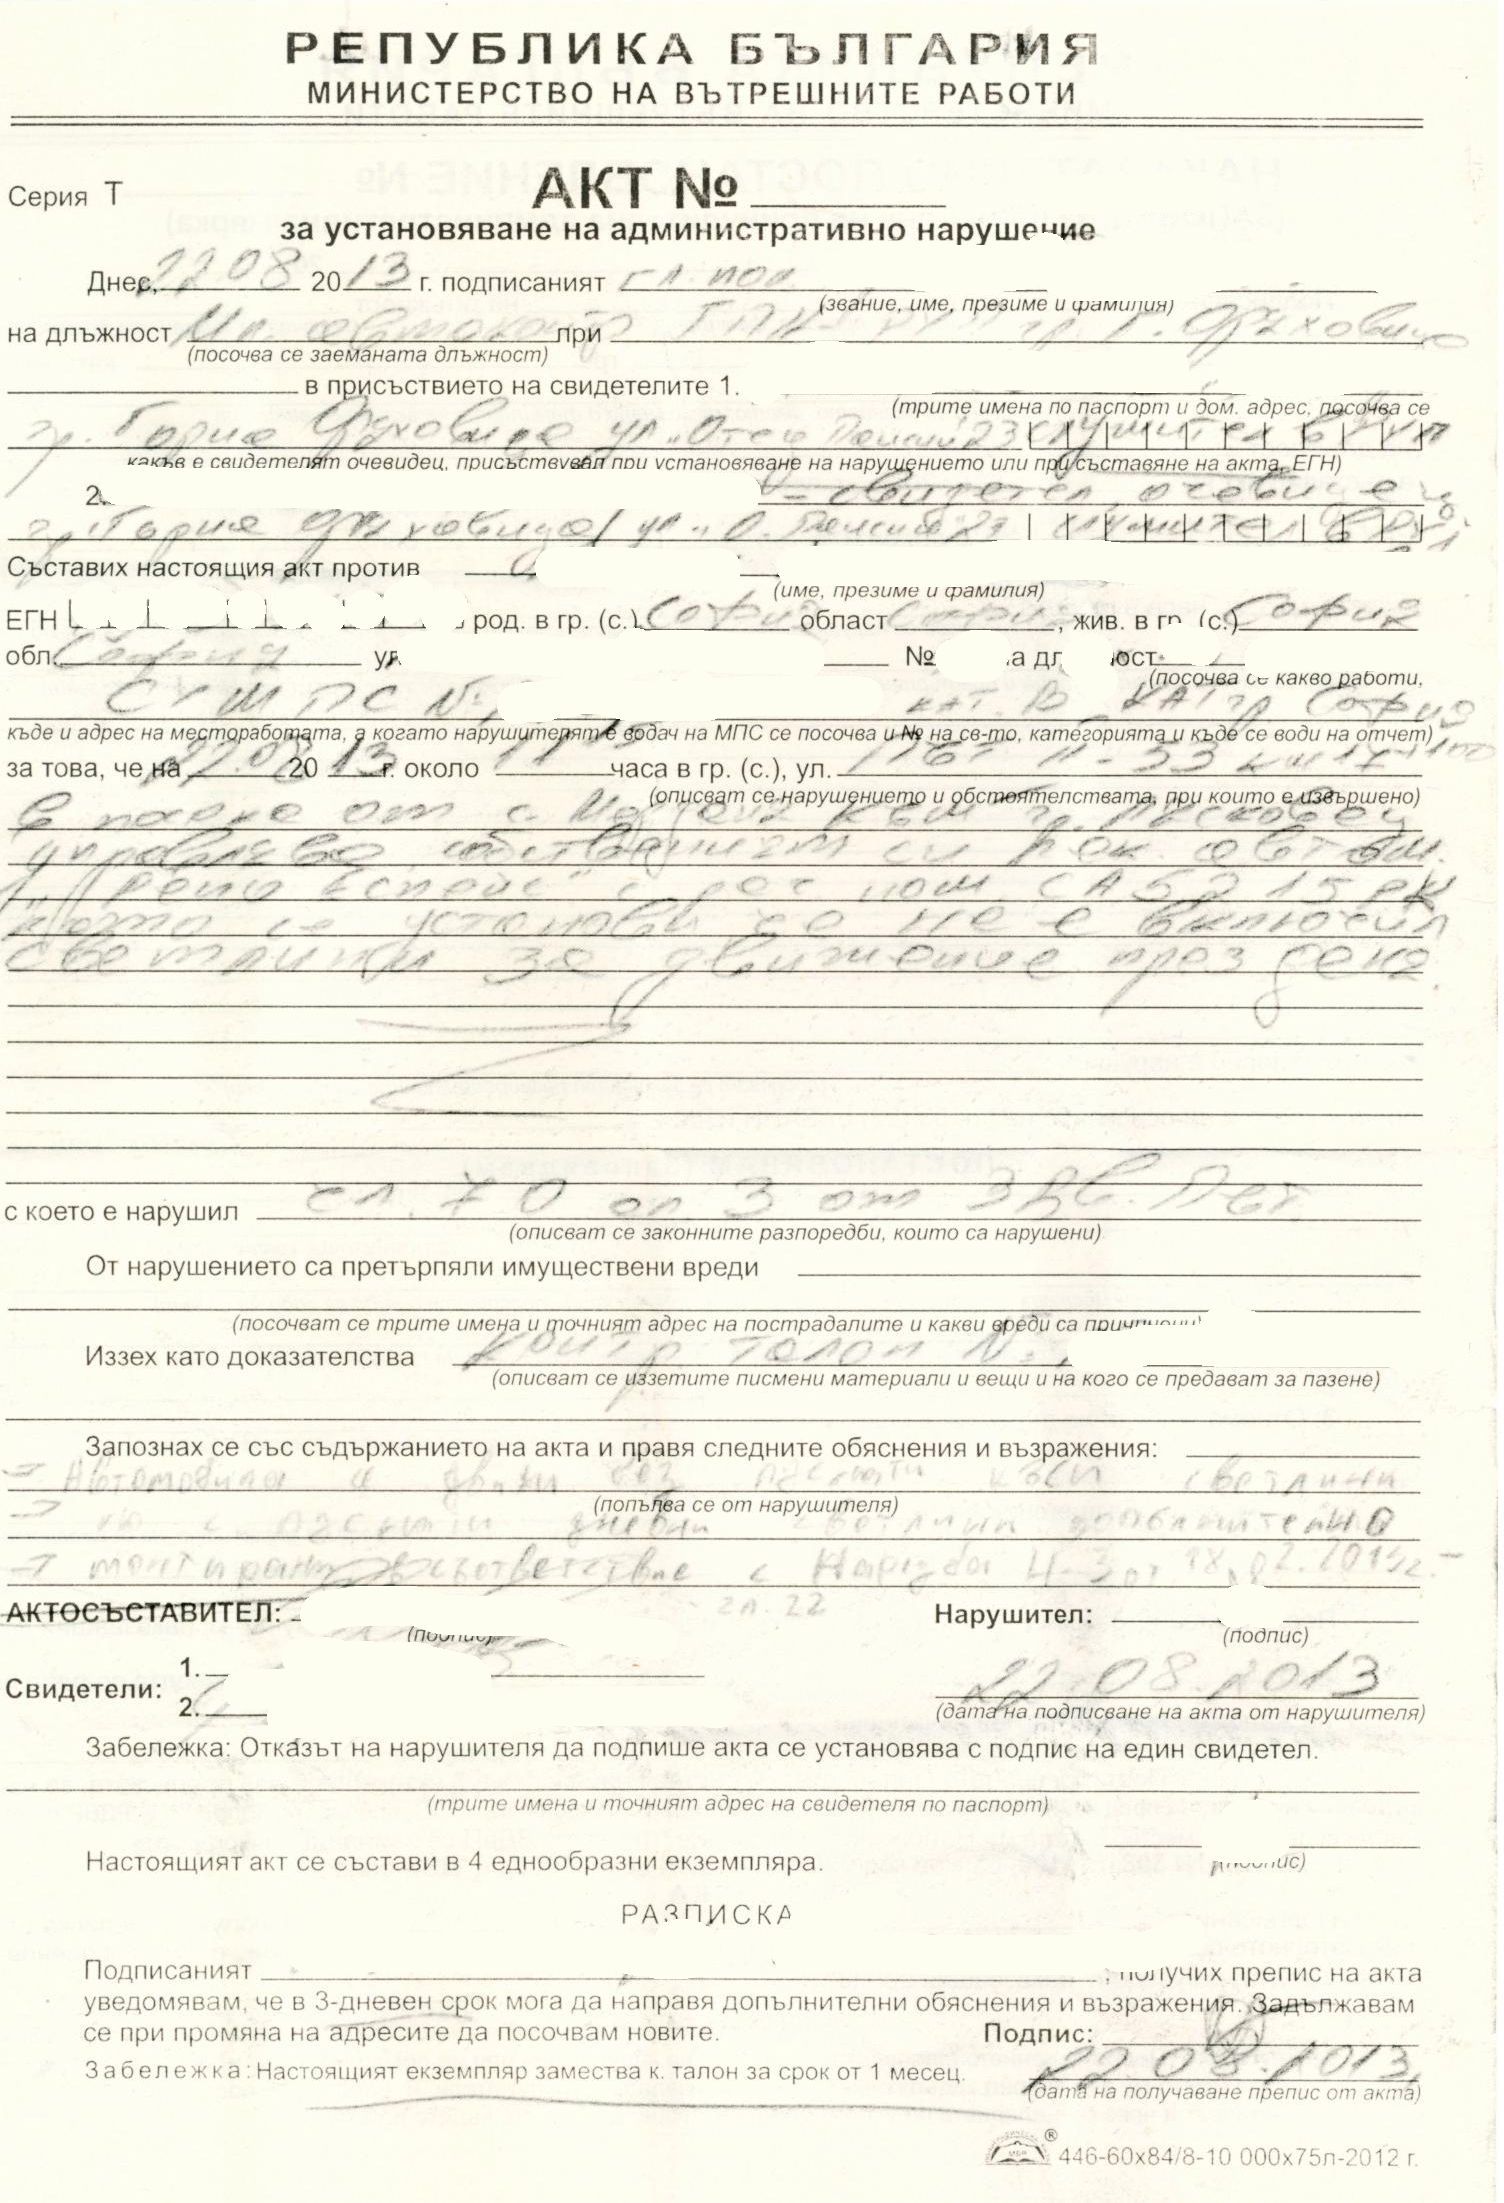 РЕПУБЛИКА БЪЛГАРИЯ
МИНИСТЕРСТВО НА ВЪТРЕШНИТЕ РАБОТИ
Серия Т АКТ №
за установяване на административно нарушение
Днес, 22 08 2013 г. подписаният гл. пол
(звание, име, презиме и фамилия)
на длъжност Мл. автоконтр при гр. Г. Оряховица
(посочва се заеманата длъжност)
в присъствието на свидетелите 1.
(трите имена по паспорт и дом. адрес, посочва се
гр. Горна Оряховица ул. „Отец Паисий" 23 служител в РУП
какъв е свидетелят очевидец, присъствувал при установяване на нарушението или при съставяне на акта, ЕГН)
2. - свидетел очевидец
гр. Горна Оряховица ул. „О. Паисий" 23 служител в
Съставих настоящия акт против
(име, презиме и фамилия)
ЕГН род. в гр. (с.) София област София, жив. в гр (с.) София
обл. София ул № на дл ност
(посочва се какво работи,
СУМПС №, кат. В КАТ гр София
къде и адрес на местоработата, а когато нарушителят е водач на МПС се посочва и № на св-то, категорията и къде се води на отчет)
за това, че на 22.08 2013 г. около часа в гр. (с.), ул.
(описват се нарушението и обстоятелствата, при които е извършено)
в посока от с. към гр. Лясковец
управлява собственият си лек автом.
„Рено Еспейс" с рег ном СА5215РК
като се установи че не е включил
светлини за движение през деня
с което е нарушил чл. 70 ал 3 от ЗДв. Път
(описват се законните разпоредби, които са нарушени)
От нарушението са претърпяли имуществени вреди
(посочват се трите имена и точният адрес на пострадалите и какви вреди са причинени)
Иззех като доказателства контр талон №
(описват се иззетите писмени материали и вещи и на кого се предават за пазене)
Запознах се със съдържанието на акта и правя следните обяснения и възражения:
Автомобила се движи без пуснати къси светлини
(попълва се от нарушителя)
но с пуснати дневни светлини допълнително
монтирани в съответствие с Наредба Н-3 от 18.02.2013г.
чл. 22
АКТОСЪСТАВИТЕЛ: Нарушител:
(подпис) (подпис)
Свидетели: 1.
2.
22.08.2013
(дата на подписване на акта от нарушителя)
Забележка: Отказът на нарушителя да подпише акта се установява с подпис на един свидетел.
(трите имена и точният адрес на свидетеля по паспорт)
Настоящият акт се състави в 4 еднообразни екземпляра.
(подпис)
РАЗПИСКА
Подписаният , получих препис на акта
уведомявам, че в 3-дневен срок мога да направя допълнителни обяснения и възражения. Задължавам
се при промяна на адресите да посочвам новите. Подпис:
22.08.2013
Забележка: Настоящият екземпляр замества к. талон за срок от 1 месец.
(дата на получаване препис от акта)
446-60x84/8-10 000x75л-2012 г.